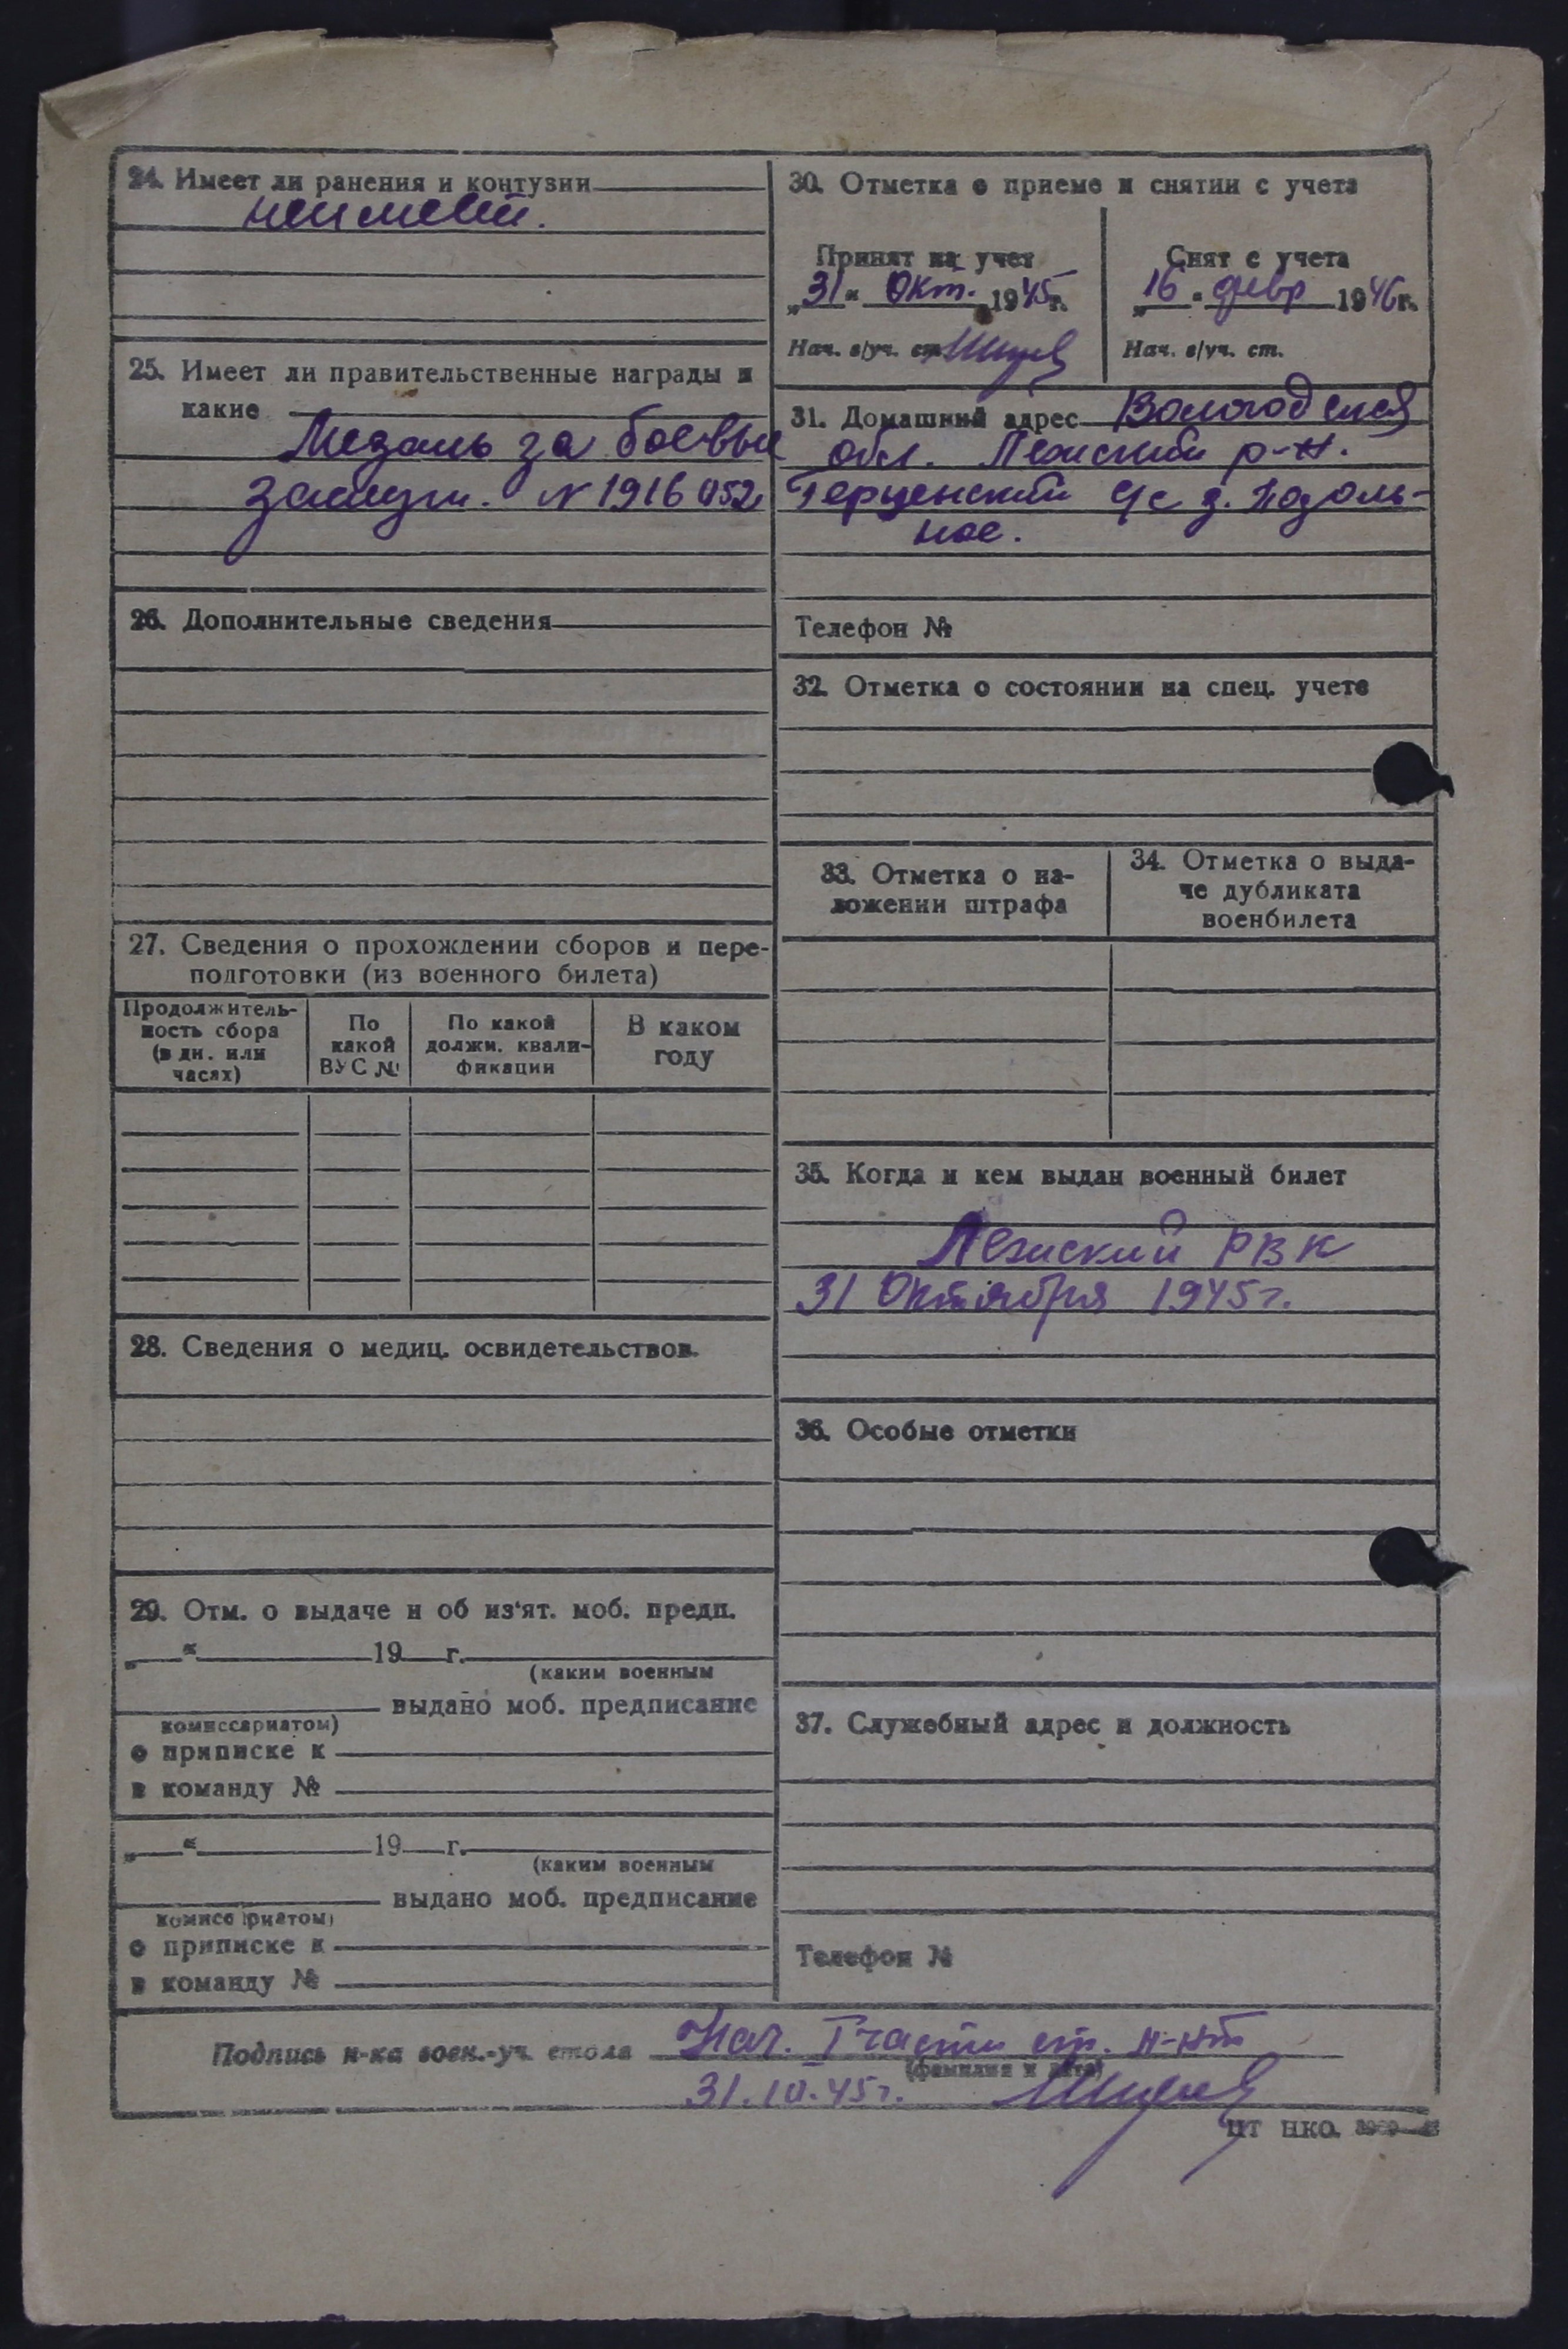 24. Имеет ли ранения и контузии
неимеет.
25. Имеет ли правительственные награды и
какие
Медаль за боевые
заслуги. N 1916052
26. Дополнительные сведения
27. Сведения о прохождении сборов и пере-
подготовки (из военного билета)
Продолжитель-
ность сбора
(в дн. или
часях)
По
какой
ВУС №
По какой
должн. квали-
фикации
В каком
году
28. Сведения о медиц. освидетельствов.
29. Отм. о выдаче и об из'ят. моб. предп.
„ “ 19 г.
(каким военным
выдано моб. предписание
комиссариатом)
о приписке к
в команду №
„ “ 19 г.
(каким военным
выдано моб. предписание
комиссариатом)
о приписке к
в команду №
30. Отметка о приеме и снятии с учета
Принят на учет
„31“ Окт. 1945г.
Нач. в/уч. ст.
Снят с учета
„16“ февр 1946г.
Нач. в/уч. ст.
31. Домашний адрес Вологодская
обл. Лежский р-н.
Герценский с/с д. Подоль-
ное.
Телефон №
32. Отметка о состоянии на спец. учете
33. Отметка о на-
ложении штрафа
34. Отметка о выда-
че дубликата
военбилета
35. Когда и кем выдан военный билет
Лежский РВК
31 Октября 1945г.
36. Особые отметки
37. Служебный адрес и должность
Телефон №
Подпись н-ка воен.-уч. стола Нач. I части ст. л-нт
(фамилия и дата)
31.10.45г.
ЦТ НКО.